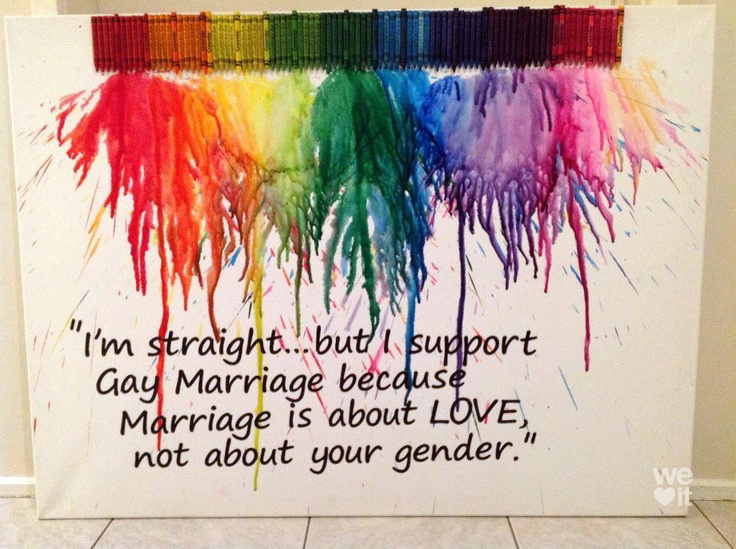 "I'm straight...but I support
Gay Marriage because
Marriage is about LOVE,
not about your gender."
we
it